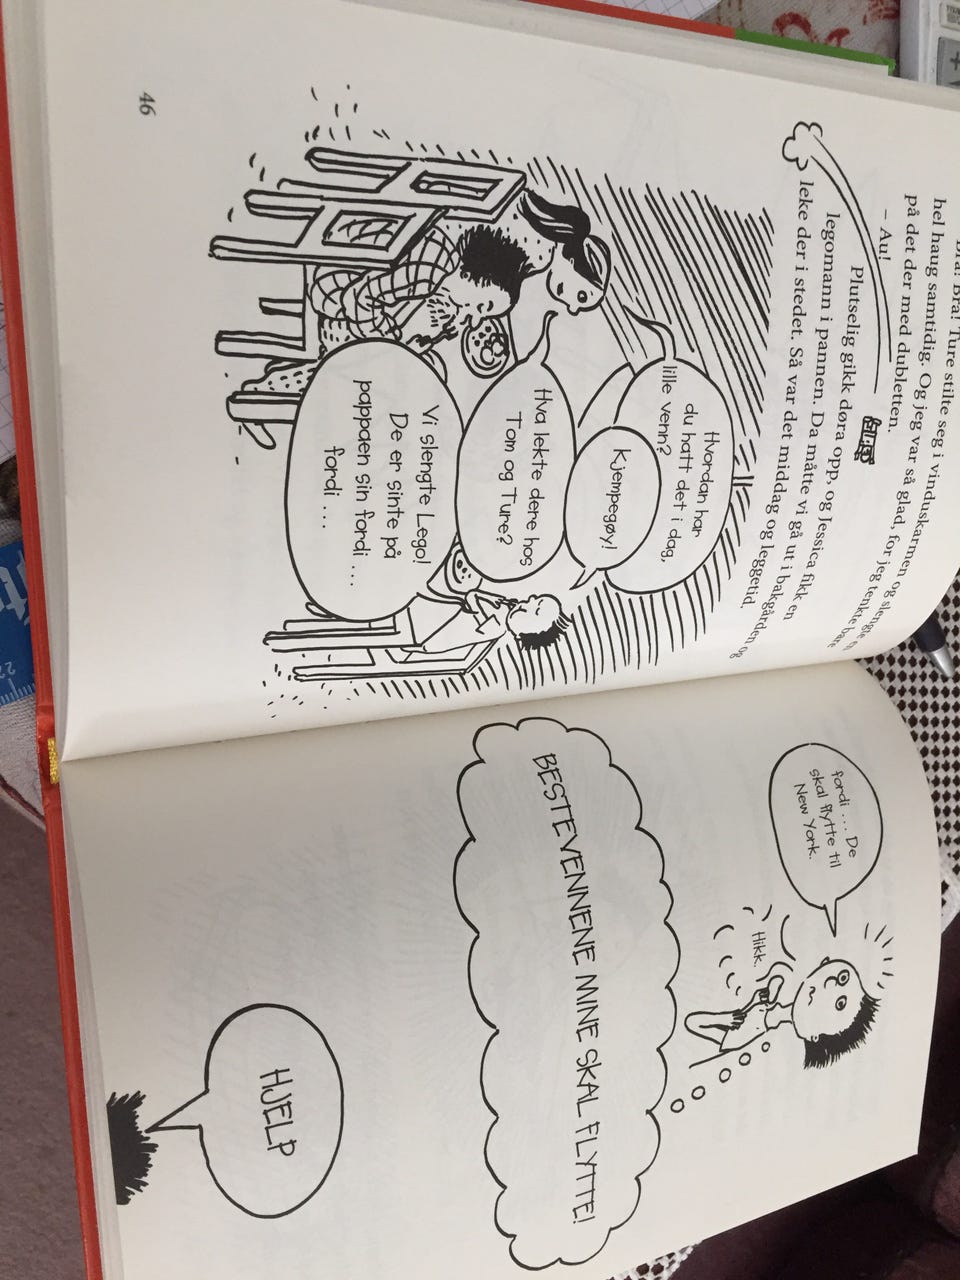 Bra! Bra! Ture stilte seg i vinduskarmen og slengte
hel haug samtidig. Og jeg var så glad, for jeg tenkte bare
på det der med dubletten.
– Au!
Plutselig gikk døra opp, og Jessica fikk en
legomann i pannen. Da måtte vi gå ut i bakgården og
leke der i stedet. Så var det middag og leggetid.
Hvordan har
du hatt det i dag,
lille venn?
Kjempegøy!
Hva lekte dere hos
Tom og Ture?
Vi slengte Lego!
De er sinte på
pappaen sin fordi ...
fordi ...
46
fordi ... De
skal flytte til
New York.
Hikk.
BESTEVENNENE MINE SKAL FLYTTE!
HJELP